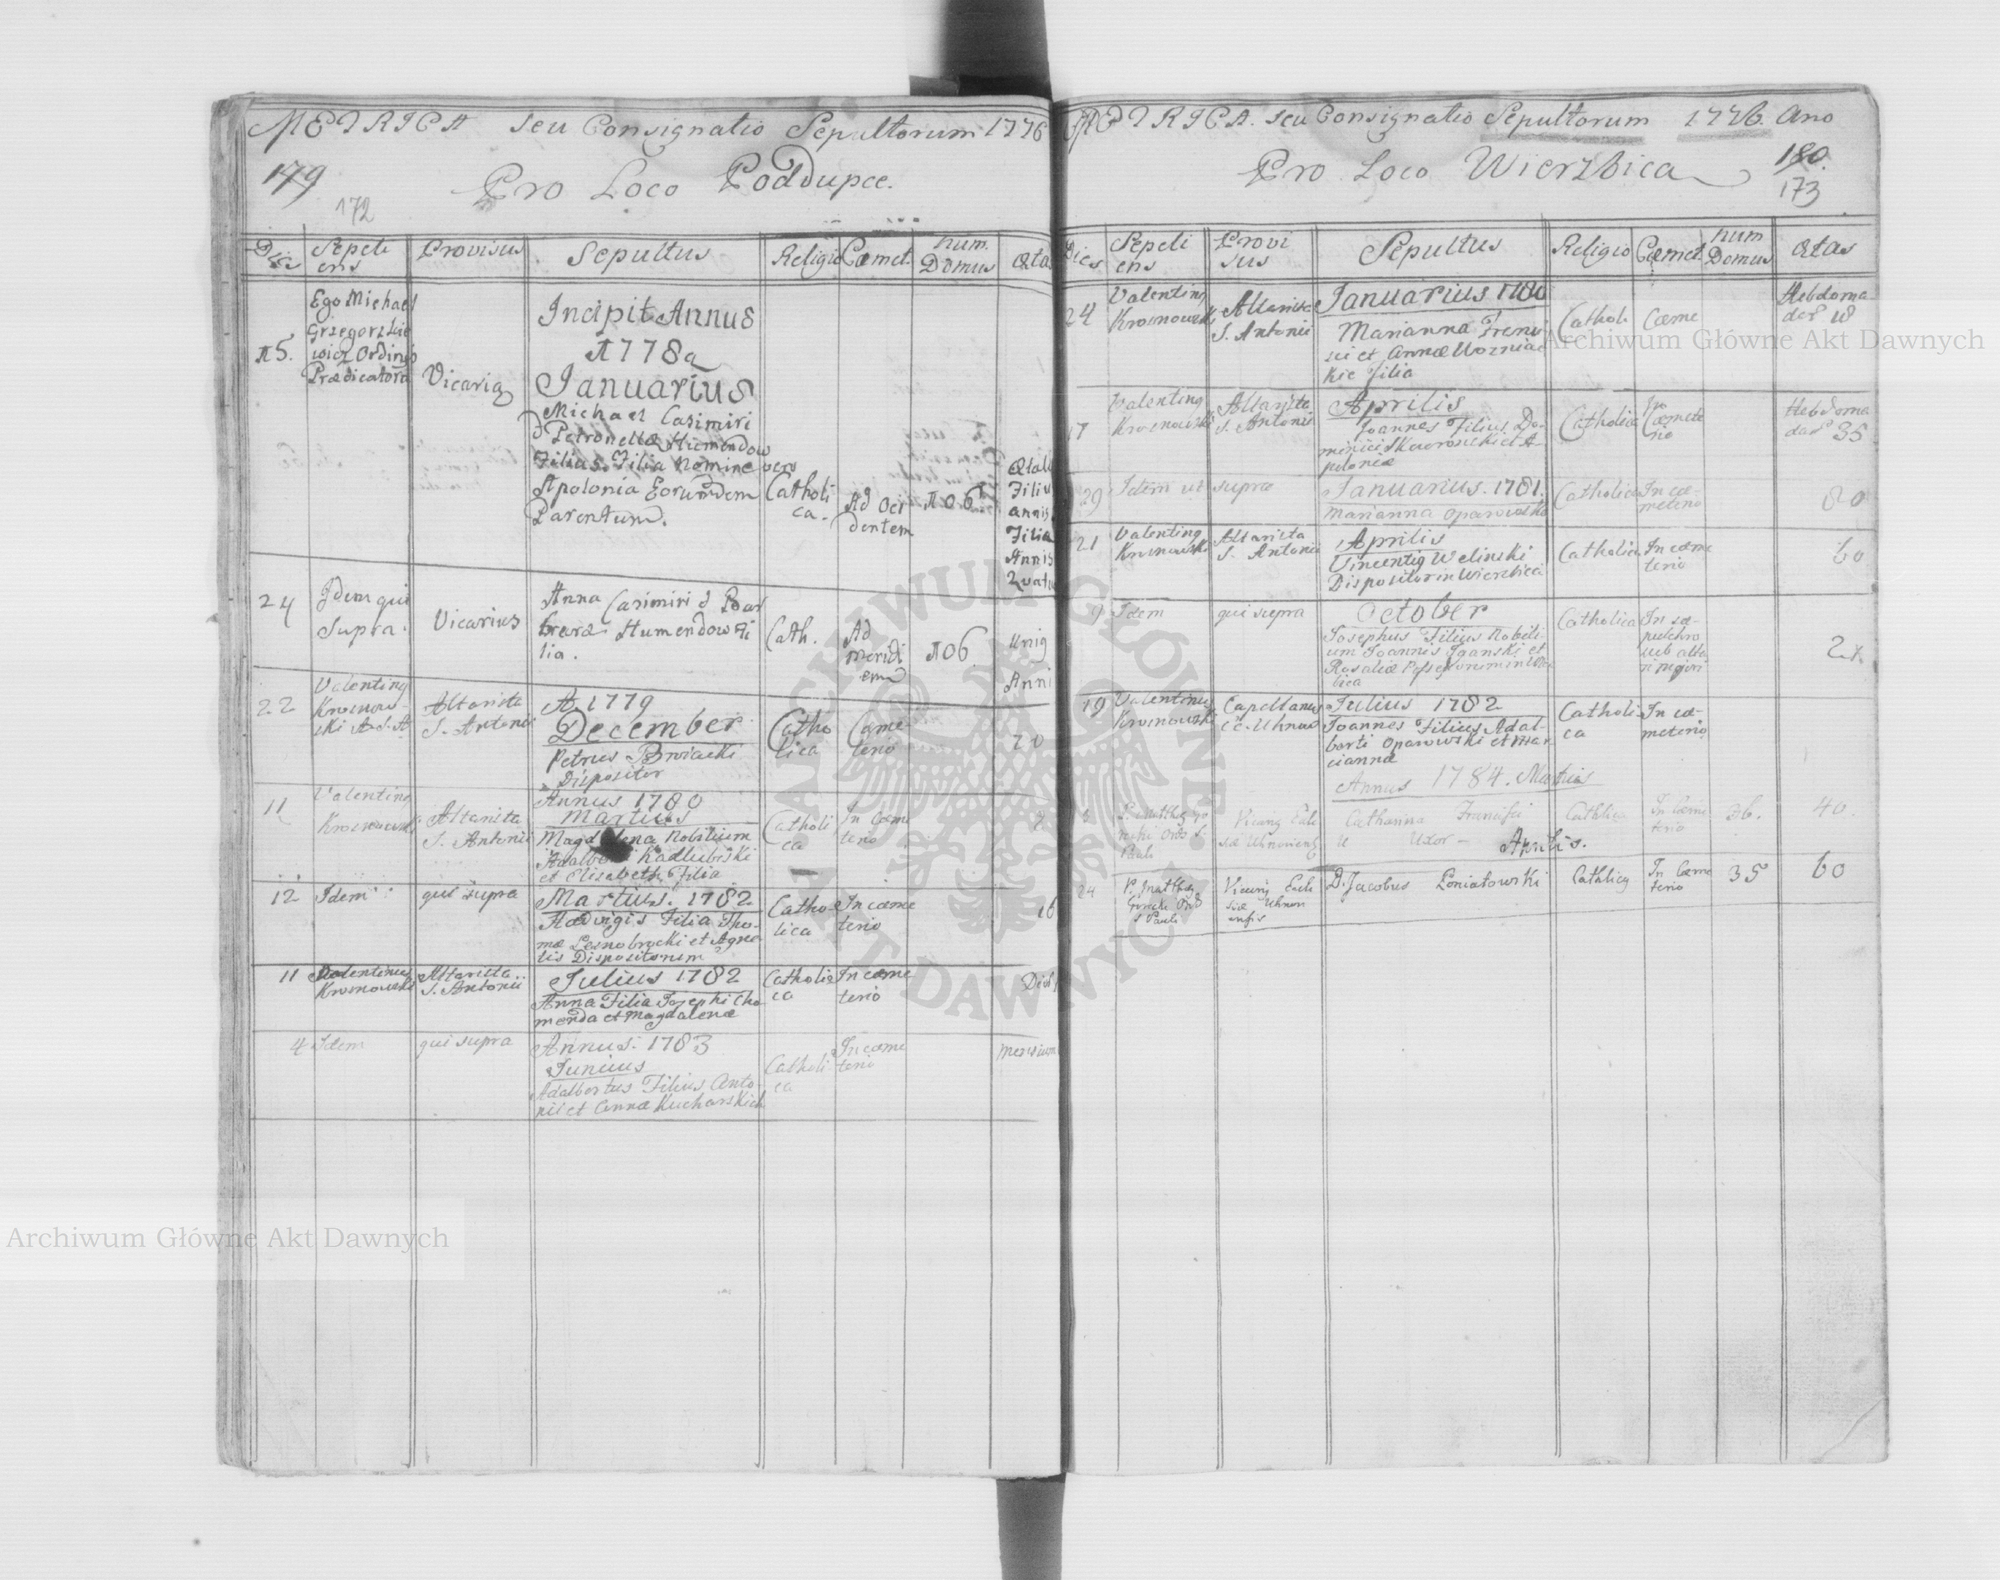 METRICA seu Consignatio Sepultorum 1776
179
Pro Loco Poddupce.
172
Dies
Sepeli
ens
Provisus
Sepultus
Religio
Cœmet.
Num.
Domus
Ætas
15.
Ego Michael
Grzegorzkie
wicz Ordinis
Prædicatorū
Vicariq
Incipit Annus
1778q
Januarius
Michael Casimiri
& Petronellæ Humendow
Filius. Filia Nomine vero
Apolonia Eorumdem
Parentum.
Catholi
ca.
Ad Occi
dentem
106
Ætatis
Filius
annis
Filia
Annis
24
Idem qui
Supra.
Vicarius
Anna Casimiri & Bar
baræ Humendow Fi
lia.
Cath.
Ad
meridi
em
106
Anni
22
Valentinq
Krosnows
ki A.S.A
Altarista
S. Antonii
A. 1779
December
Petrus
Dispositor
Catho
lica
Cæme
terio
70
11
Valentinq
Krosnowski
Altarista
S. Antonii
Annus 1780
Martius
Magdalena Nobilium
Adalberti Kadlubiski
et Elisabeth Filia
Catholi
ca
In Cœme
terio
12
Idem
qui supra
Martius. 1782
Hædvigis Filia Tho-
mæ Lesnobrocki et Agne-
tis Dispositorum
Catho-
lica
In cœme
terio
16
11
Valentinus
Krosnowski
Altarista
S. Antonii
Julius 1782
Anna Filia Josephi Cho
menda et Magdalenæ
Catholi
ca
In cœme
terio
4
Idem
qui supra
Annus. 1783
Junius
Adalbertus Filius Anto-
nii et Annæ Kucharskich
Catholi
ca
In cœme
terio
Mensium
METRICA. seu Consignatio Sepultorum 1776. Ano
Pro Loco Wierzbica
180.
173
Dies
Sepeli
ens
Provi
sus
Sepultus
Religio
Cœmet
Num
Domus
Ætas
24
Valentinq
Krosnowski
Altarista
S. Antonii
Januarius 1780
Marianna
et Annæ Wozniac
kie Filia
Cathol.
Cæme
Hebdoma
dar
17
Valentinq
Krosnowski
Altarista
S. Antonii
Aprilis
Joannes Filius Do-
minici Skworonski et A-
poloniæ
Catholica
In
Cœmete
rio
Hebdoma
dar 35
29
Idem ut supra
Januarius. 1781.
Marianna Oparowska
Catholica
In cœ-
meterio
80
21
Valentinq
Krosnowski
Altarista
S. Antonii
Aprilis
Vincentiq Welinski
Dispositor in Wierzbica
Catholica
In cœme
terio
60
9
Idem
qui supra
October
Josephus Filius Nobili-
um Joannis et
Rosaliæ Possessorum in Wierz
bica
Catholica
In se-
pulchro
sub alta
ri majori
19
Valentinus
Krosnowski
Capellanus
Ec. Uhnow
Julius 1782
Joannes Filius Adal-
berti Oparowski et Mar
ciannæ
Catholi-
ca
In cœ-
meterio
Annus 1784. Martius
Vicariq Eccle
siæ Uhnoviens
Catharina Francisci
Uxor
Catholica
In Cœme
terio
36.
40.
Aprilis.
24
P. Matthæq
Gorecki Ord
S Pauli
Vicariq Eccle
siæ Uhnov
ensis
D. Jacobus Loniatowski
Catholicq
In Cœme
terio
35
60
Archiwum Główne Akt Dawnych
Archiwum Główne Akt Dawnych
ARCHIWUM GŁÓWNE AKT DAWNYCH